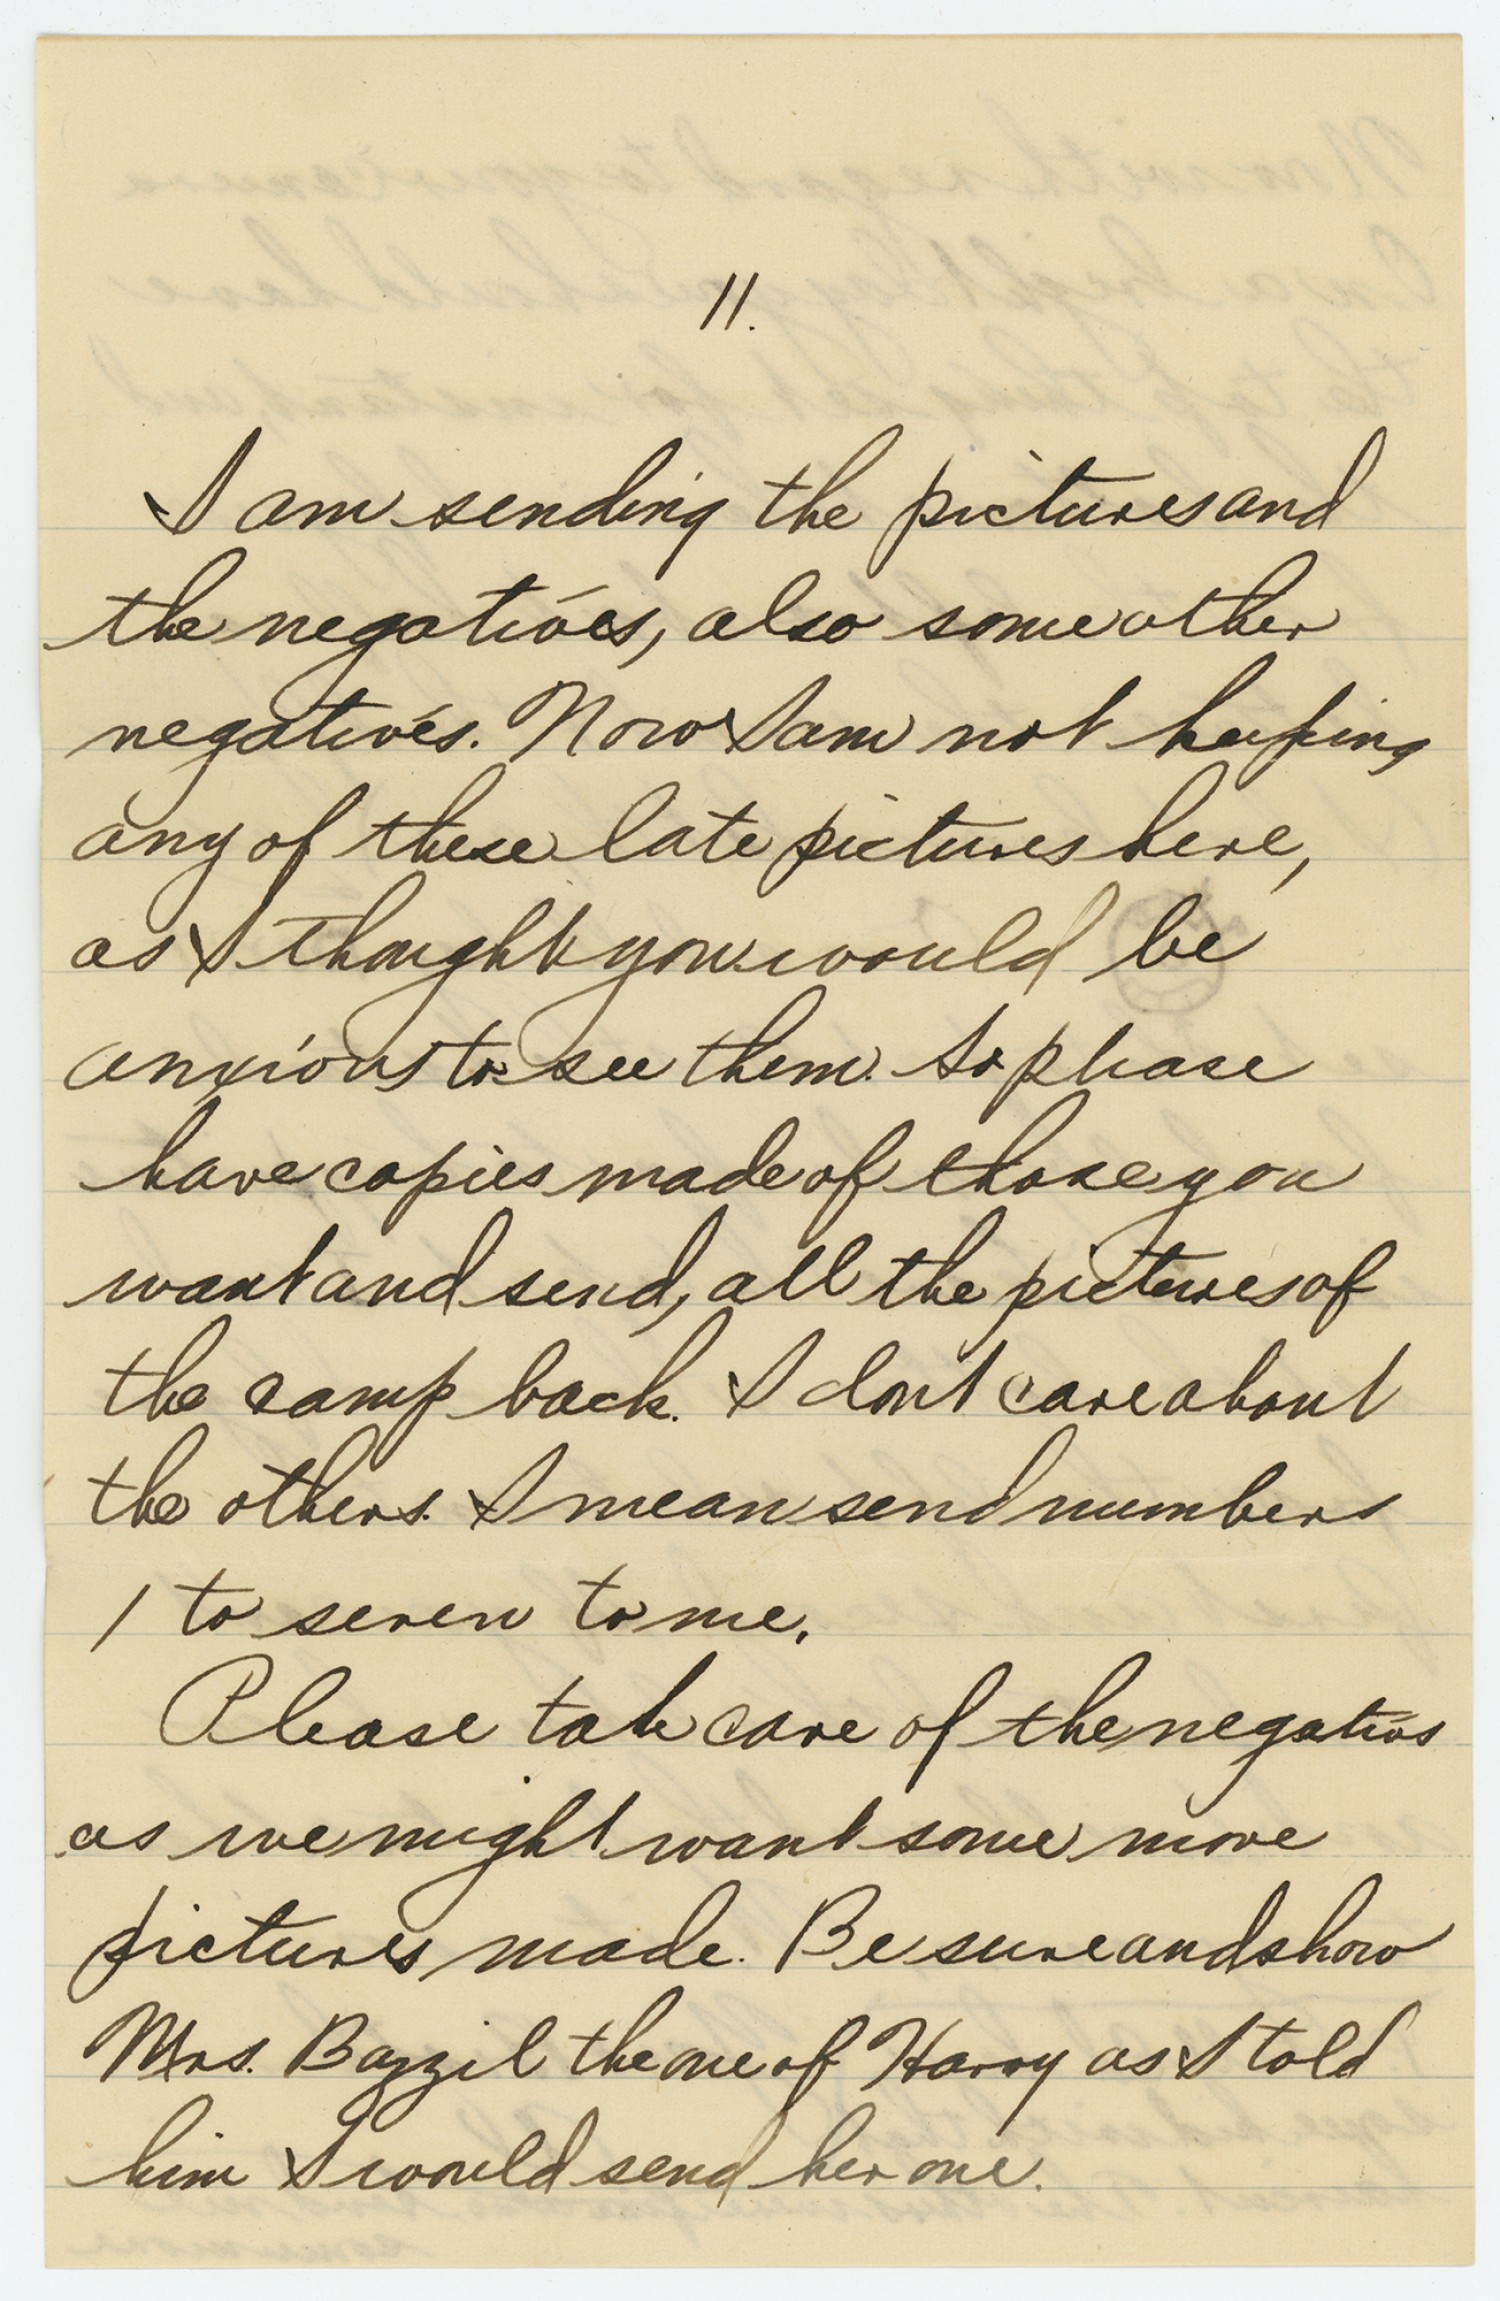 11.
I am sending the pictures and
the negatives, also some other
negatives. Now I am not keeping
any of these late pictures here,
as I thought you would be
anxious to see them. So please
have copies made of those you
want and send, all the pictures of
the camp back. I don't care about
the others. I mean send numbers
1 to seven to me.
Please take care of the negatives
as we might want some more
pictures made. Be sure and show
Mrs. Bazzil the one of Harry as I told
him I would send her one.